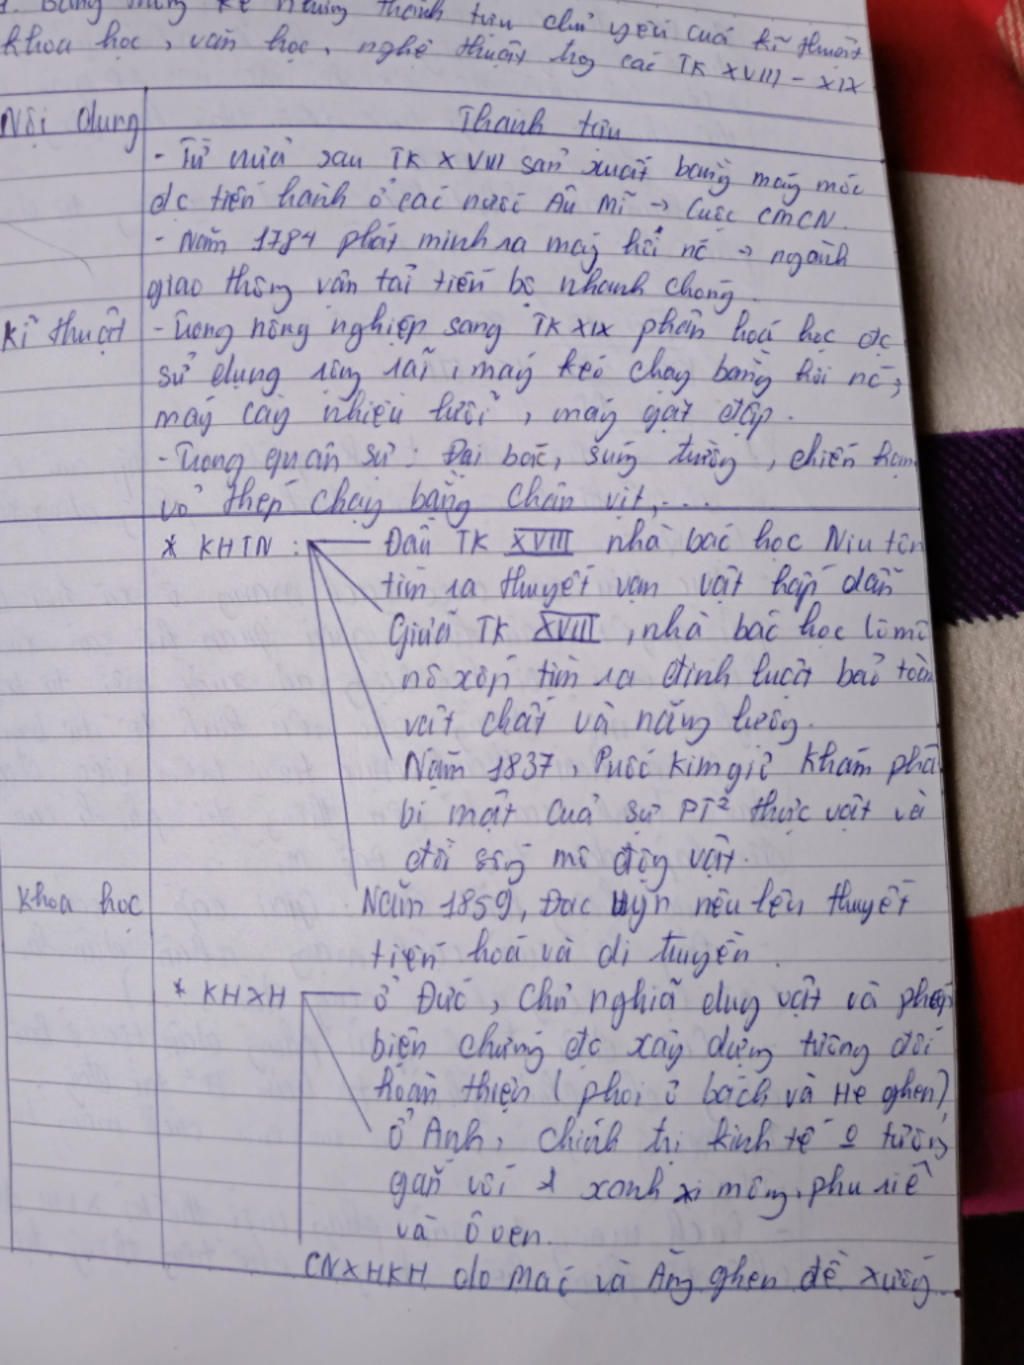 1. Bảng thống kê những thành tựu chủ yếu của kĩ thuật
khoa học, văn học, nghệ thuật trog các TK XVIII - XIX
Nội dung Thành tựu
- Từ nửa sau TK XVIII sản xuất bằng máy móc
đc tiến hành ở các nước Âu Mĩ → Cuộc CMCN.
- Năm 1784 phát minh ra máy hơi nc → ngành
giao thông vận tải tiến bộ nhanh chóng.
Kĩ thuật - Trong nông nghiệp sang TK XIX phân hoá học đc
sử dụng rộng rãi, máy kéo chạy bằng hơi nc,
máy cày nhiều lưỡi, máy gặt đập.
- Trong quân sự: Đại bác, súng trường, chiến hạm
vỏ thép chạy bằng chân vịt,...
* KHTN: Đầu TK XVIII nhà bác học Niu tơn
tìm ra thuyết vạn vật hấp dẫn
Giữa TK XVIII, nhà bác học Lô mô
nô xốp tìm ra định luật bảo toàn
vật chất và năng lượng.
Năm 1837, Puốc kim giơ khám phá
bí mật của sự PT² thực vật và
đời sống mô động vật.
Khoa học Năm 1859, Đác uyn nêu lên thuyết
tiến hoá và di truyền.
* KHXH ở Đức, chủ nghĩa duy vật và phép
biện chứng đc xây dựng tương đối
hoàn thiện (phoi ơ bách và Hê ghen)
ở Anh, chính trị kinh tế o tưởng
gắn với xanh xi mông, phu riê
và Ô oen.
CNXHKH do Mác và Ăng ghen đề xướng.